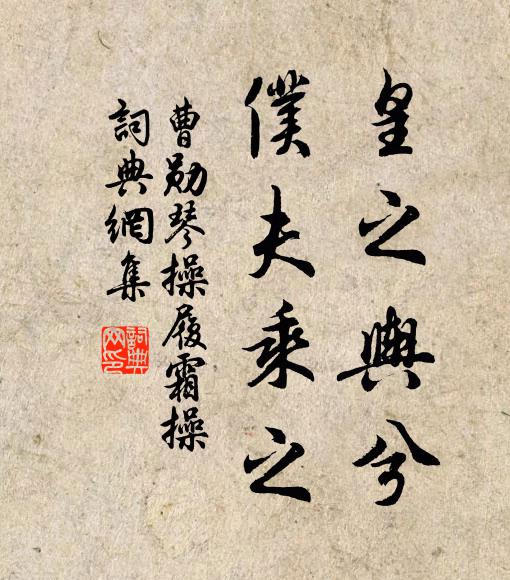 皇之輿兮
僕夫乘之
曹勛琴操履霜操
詞典網集
詞典網印